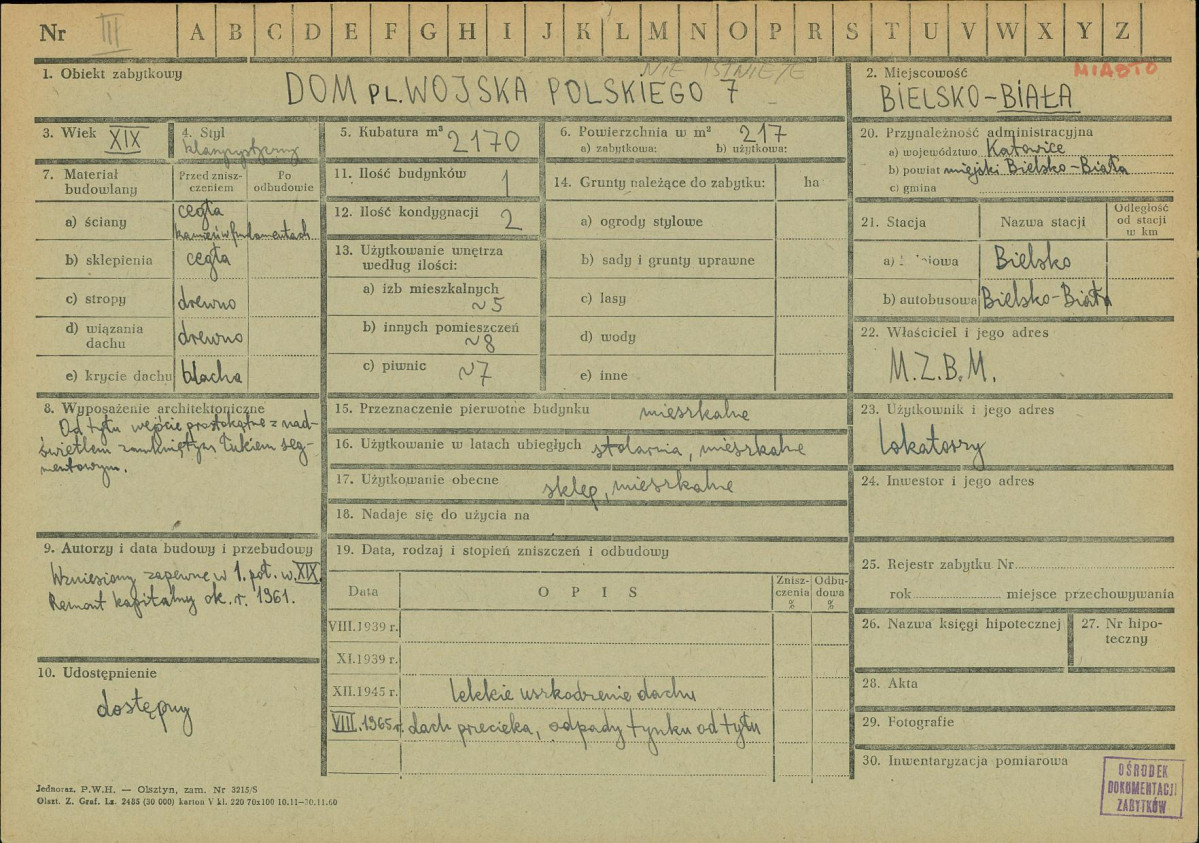 Nr III A B C D E F G H I J K L M N O P R S T U V W X Y Z
1. Obiekt zabytkowy
NIE ISTNIEJE
DOM PL. WOJSKA POLSKIEGO 7
2. Miejscowość
MIASTO
BIELSKO-BIAŁA
3. Wiek XIX
4. Styl
klasycystyczny
5. Kubatura m³ 2170
6. Powierzchnia w m² 217
a) zabytkowa: b) użytkowa:
20. Przynależność administracyjna
a) województwo Katowice
b) powiat miejski Bielsko-Biała
c) gmina
7. Materiał budowlany
Przed znisz-
czeniem
Po
odbudowie
a) ściany cegła
kamień w fundamentach
b) sklepienia cegła
c) stropy drewno
d) wiązania
dachu drewno
e) krycie dachu blacha
11. Ilość budynków 1
12. Ilość kondygnacji 2
13. Użytkowanie wnętrza
według ilości:
a) izb mieszkalnych
~5
b) innych pomieszczeń
~8
c) piwnic ~7
14. Grunty należące do zabytku: ha
a) ogrody stylowe
b) sady i grunty uprawne
c) lasy
d) wody
e) inne
21. Stacja
Nazwa stacji
Odległość
od stacji
w km
a) Bielsko
b) autobusowa Bielsko-Biała
22. Właściciel i jego adres
M.Z.B.M.
8. Wyposażenie architektoniczne
Od tyłu wejście prostokątne z nad-
świetlem zamkniętym łukiem seg-
mentowym.
15. Przeznaczenie pierwotne budynku mieszkalne
16. Użytkowanie w latach ubiegłych stolarnia, mieszkalne
17. Użytkowanie obecne sklep, mieszkalne
18. Nadaje się do użycia na
23. Użytkownik i jego adres
lokatorzy
24. Inwestor i jego adres
9. Autorzy i data budowy i przebudowy
Wzniesiony zapewne w 1. poł. w. XIX.
Remont kapitalny ok. r. 1961.
10. Udostępnienie
dostępny
19. Data, rodzaj i stopień zniszczeń i odbudowy
Data
OPIS
Znisz-
czenia
%
Odbu-
dowa
%
VIII.1939 r.
XI.1939 r.
XII.1945 r. lekkie uszkodzenie dachu
VIII.1965 r. dach przecieka, odpady tynku od tyłu
25. Rejestr zabytku Nr
rok miejsce przechowywania
26. Nazwa księgi hipotecznej
27. Nr hipo-
teczny
28. Akta
29. Fotografie
30. Inwentaryzacja pomiarowa
OŚRODEK
DOKUMENTACJI
ZABYTKÓW
Jednoraz. P.W.H. — Olsztyn, zam. Nr 3215/S
Olszt. Z. Graf. Lz. 2485 (30 000) karton V kl. 220 70x100 10.11—30.11.60